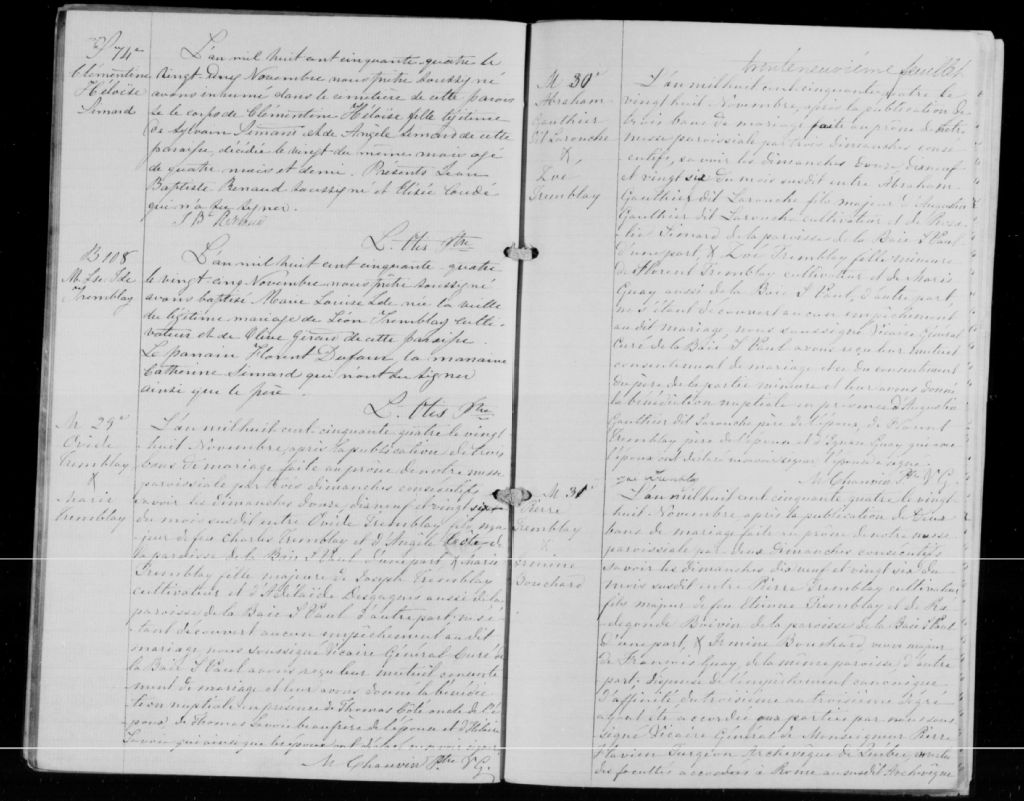 S 74e
Clémentine
Héloïse
Simard
L'an mil huit cent cinquante quatre le
vingt Novembre nous prêtre soussigné
avons inhumé dans le cimetière de cette parois
se le corps de Clémentine Héloïse fille légitime
de Sylvain Simard et de Angèle Simard de cette
paroisse, décédée le vingt du même mois agé
de quatre mois et demi. Présents Jean
Baptiste Renaud soussigné et Elisée
qui n'a su signer.
J Bte Renaud
L. Otis Ptre
B 108
M. Lse Ide
Tremblay
L'an mil huit cent cinquante quatre
le vingt cinq Novembre nous prêtre soussigné
avons baptisé Marie Louise Ide née la veille
du légitime mariage de Léon Tremblay culti-
vateur et de Olive Girard de cette paroisse.
Le parrain Florent Dufour la marraine
Catherine Simard qui n'ont su signer
ainsi que le père.
L. Otis Ptre
M. 29e
Ovide
Tremblay
X
Marie
Tremblay
L'an mil huit cent cinquante quatre le vingt
huit Novembre après la publication de trois
bans de mariage faite au prône de notre messe
paroissiale par trois dimanches consécutifs
savoir les dimanches douze, dix neuf et vingt six
du mois susdit entre Ovide Tremblay fils ma
jeur de feu Charles Tremblay et d'Angèle de
la paroisse de la Baie S Paul d'une part, & Marie
Tremblay fille majeure de Joseph Tremblay
cultivateur et d'Adelaïde Desgagnés aussi de la
paroisse de la Baie S Paul d'autre part; ne s'é
tant découvert aucun empêchement au dit
mariage nous soussigné Vicaire Général Curé de
la Baie S Paul avons reçu leur mutuel consente
ment de mariage et leur avons donné la bénédic
tion nuptiale en présence de Thomas Côté oncle de l'é
poux, de Thomas beaufrère de l'époux et d'
qui ainsi que les époux ont déclaré ne savoir signer
M Chauvin Ptre V.G.
trenteneuvième feuillet
M 30e
Abraham
Gauthier
dit Larouche
X
Zoé
Tremblay
L'an mil huit cent cinquante quatre le
vingt huit Novembre, après la publication de
trois bans de mariage faite au prône de notre
messe paroissiale par trois dimanches consé
cutifs, savoir les dimanches douze, dix neuf
et vingt six du mois susdit entre Abraham
Gauthier dit Larouche fils majeur d'Augustin
Gauthier dit Larouche cultivateur et de Rosa
lie Simard de la paroisse de la Baie S Paul
d'une part, & Zoé Tremblay fille mineure
de Florent Tremblay cultivateur et de Marie
Guay aussi de la Baie S Paul, d'autre part,
ne s'étant découvert aucun empêchement
au dit mariage, nous soussigné Vicaire Général
Curé de la Baie S Paul avons reçu leur mutuel
consentement de mariage et du consentement
du père de la partie mineure et leur avons donné
la bénédiction nuptiale en présence d'Augustin
Gauthier dit Larouche père de l'époux, de Florent
Tremblay père de l'épouse et d'Ignace Guay qui avec
l'époux ont déclaré ne savoir signer l'épouse a signé
Zoé Tremblay M Chauvin Ptre V.G.
M. 31e
Pierre
Tremblay
X
Bouchard
L'an mil huit cent cinquante quatre le vingt
huit Novembre après la publication de deux
bans de mariage faite au prône de notre messe
paroissiale par deux dimanches consécutifs
savoir les dimanches dix neuf et vingt six du
mois susdit entre Pierre Tremblay cultivateur
fils majeur de feu Etienne Tremblay et de Ra
degonde Boivin de la paroisse de la Baie S Paul
d'une part, & Bouchard veuve majeure
de François Guay, de la même paroisse d'autre
part. Dispense de l'empêchement canonique
d'affinité du troisième au troisième degré
ayant été accordée aux parties par nous sous
signé Vicaire Général de Monseigneur Pierre
Flavien Turgeon Archevêque de Québec, en vertu
des facultés accordées à Rome au susdit Archevêque